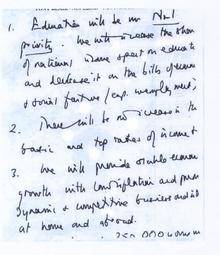 1. Education will be our No 1
priority. We will increase the share
of national income spent on education
and decrease it on the bills of economic
& social failure (esp. unemployment)
2. There will be no increase in the
basic and top rates of income
3. We will provide stable economic
growth with low inflation and
dynamic & competitive business and
at home and abroad.
250,000